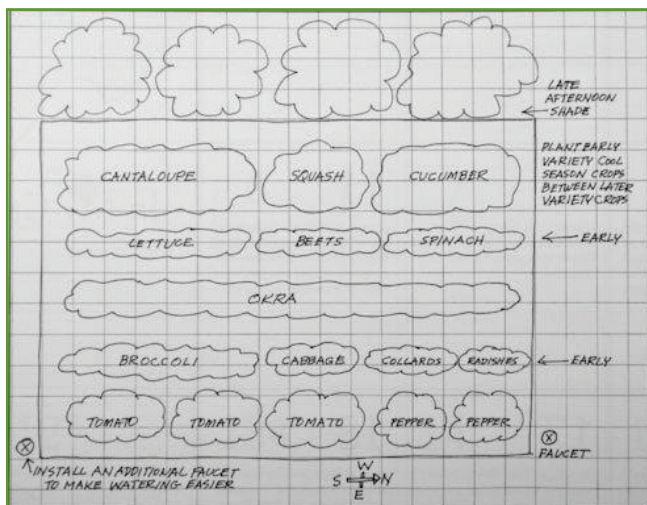 LATE
AFTERNOON
SHADE
PLANT EARLY
VARIETY COOL
SEASON CROPS
BETWEEN LATER
VARIETY CROPS
CANTALOUPE SQUASH CUCUMBER
LETTUCE BEETS SPINACH
EARLY
OKRA
BROCCOLI CABBAGE COLLARDS RADISHES
EARLY
TOMATO TOMATO TOMATO PEPPER PEPPER
FAUCET
INSTALL AN ADDITIONAL FAUCET
TO MAKE WATERING EASIER
W
S N
E